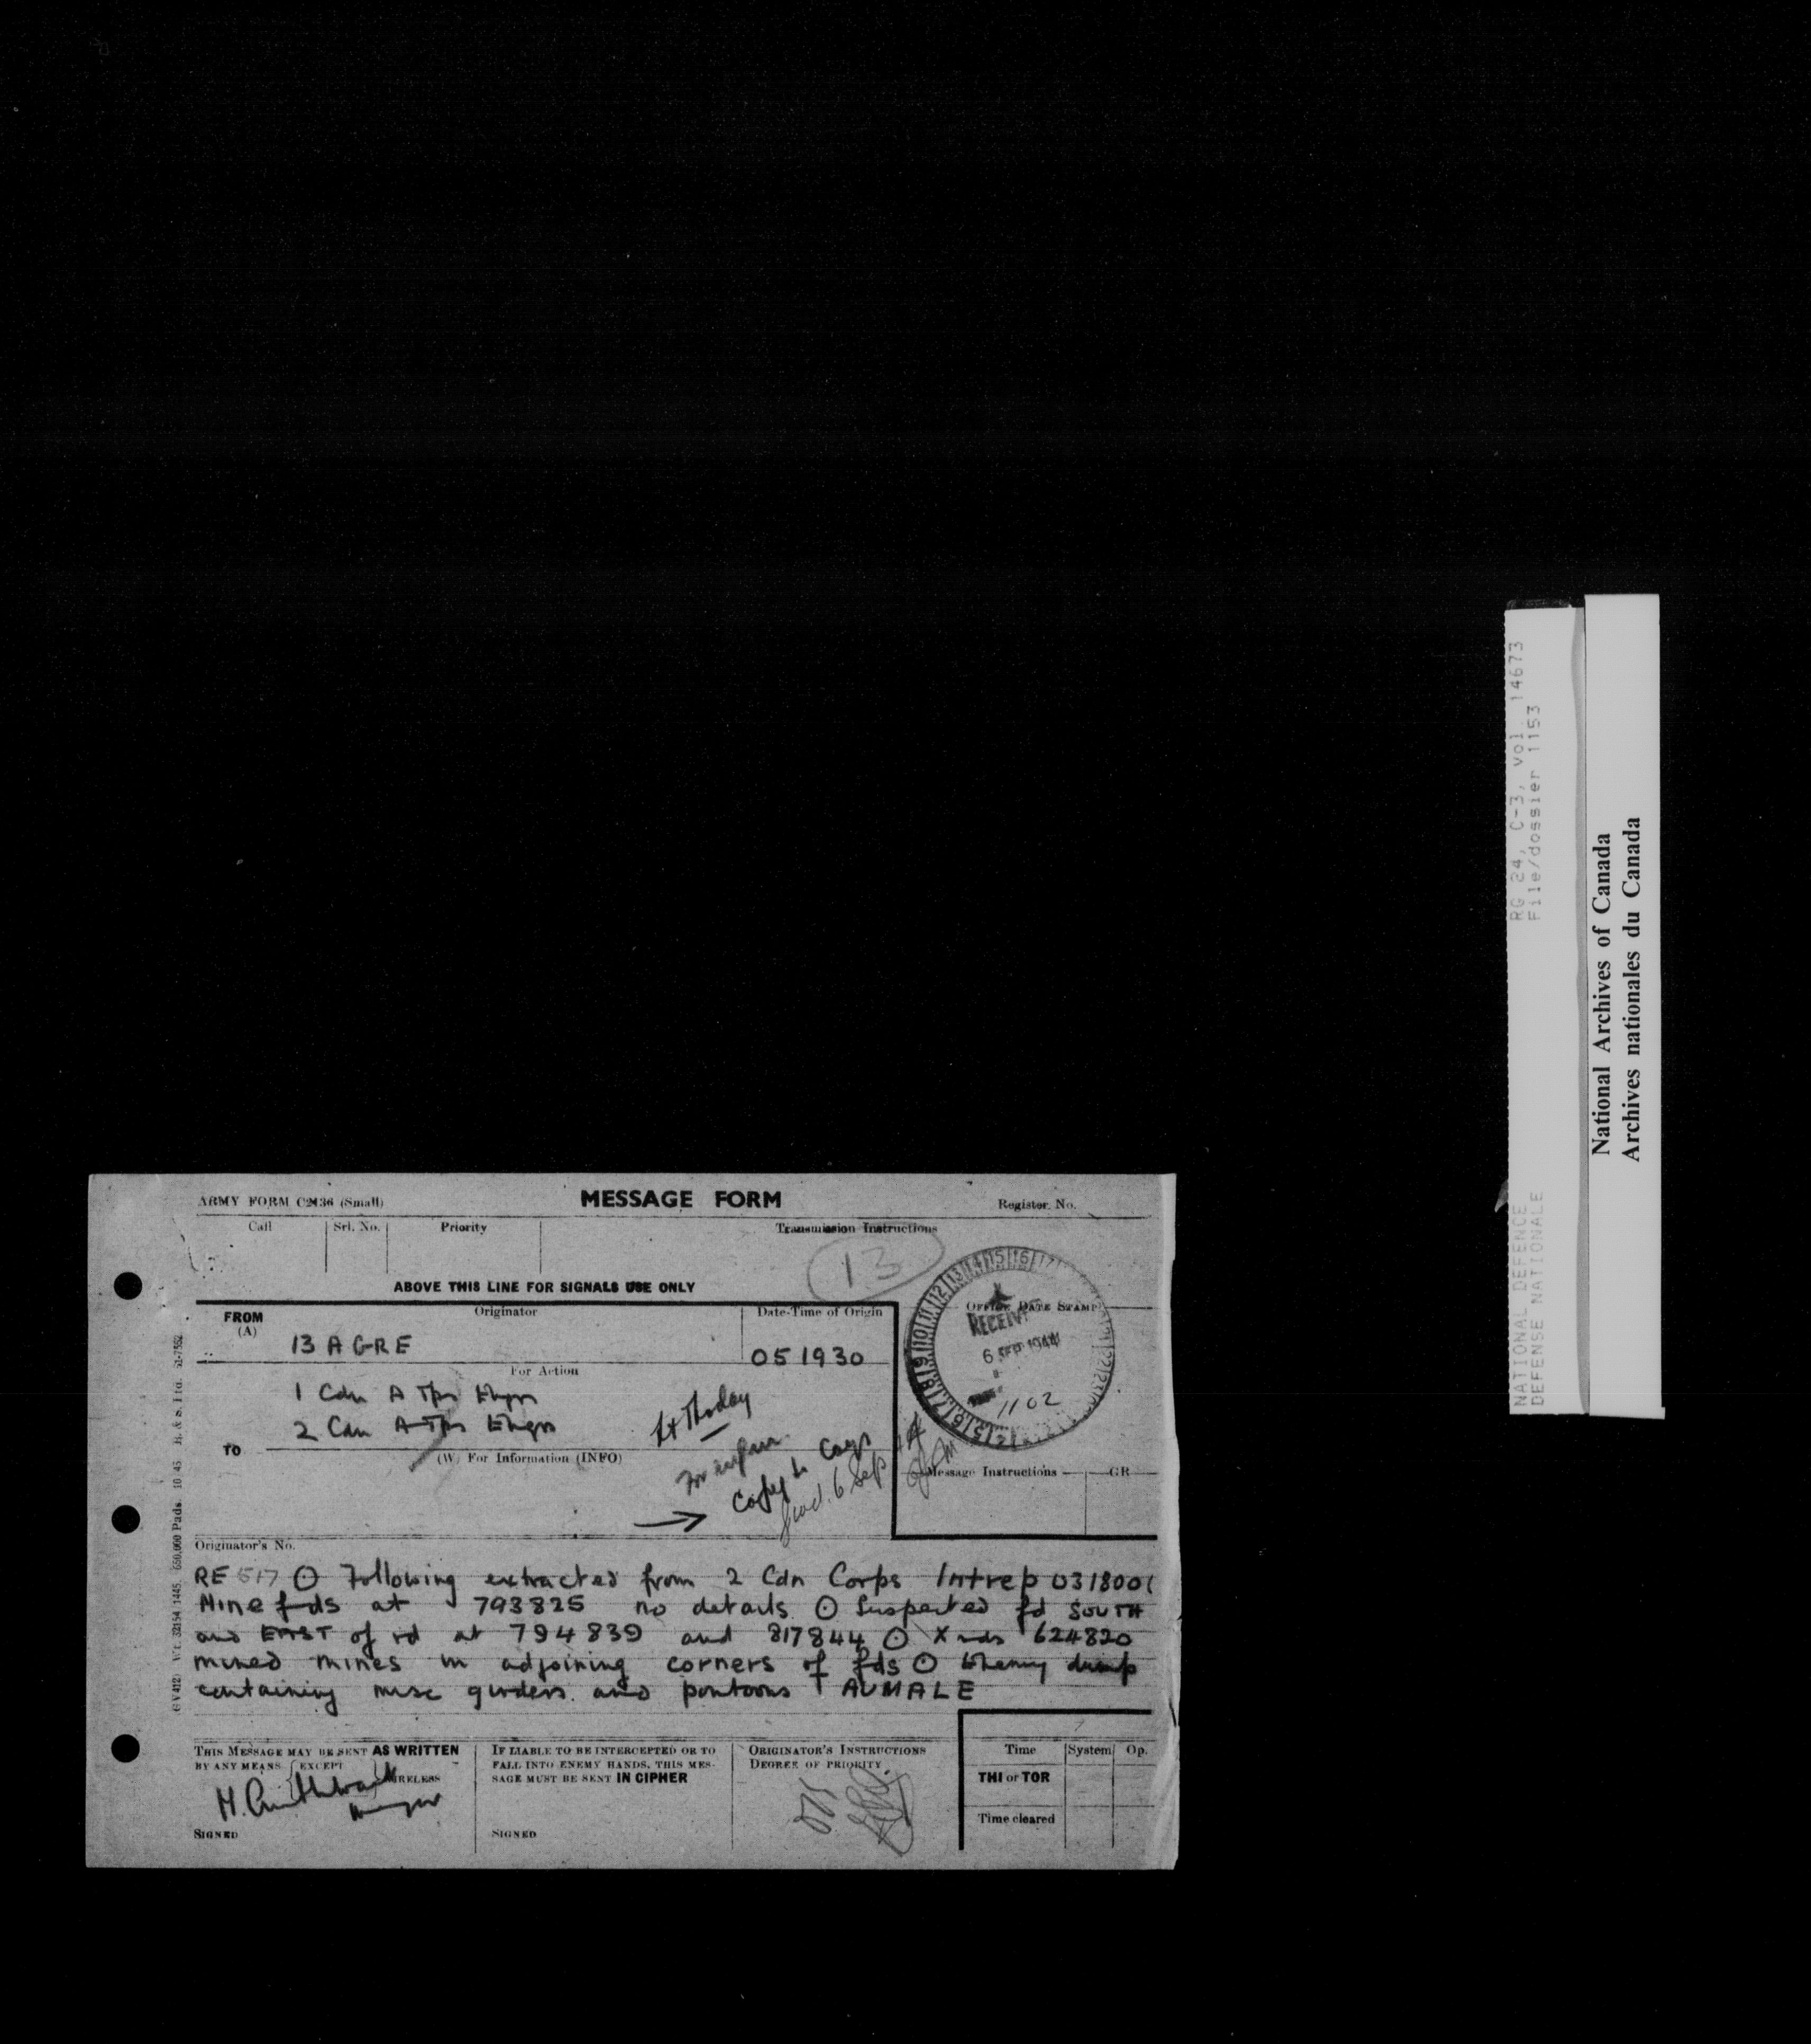 ARMY FORM C2136 (Small)
MESSAGE FORM
Register No.
Call
Srl. No.
Priority
Transmission Instructions
13
ABOVE THIS LINE FOR SIGNALS USE ONLY
FROM
(A)
Originator
Date-Time of Origin
OFFICE DATE STAMP
13 AGRE
051930
RECEIVED
6 SEP 1944
1102
For Action
1 Cdn A Tps Engrs
2 Cdn A Tps Engrs
TO
(W) For Information (INFO)
Lt Thoday
For
Copy to Coys
6 Sep
Message Instructions
GR
Originator's No.
RE 517 ⊙ Following extracted from 2 Cdn Corps Intrep 031800
Mine fds at 793825 no details ⊙ Suspected fd SOUTH
and EAST of rd at 794839 and 817844 ⊙ X rds 624820
mined mines in adjoining corners of fds ⊙ Enemy dump
containing misc girders and pontoons AUMALE
THIS MESSAGE MAY BE SENT AS WRITTEN
BY ANY MEANS EXCEPT
WIRELESS
SIGNED
IF LIABLE TO BE INTERCEPTED OR TO
FALL INTO ENEMY HANDS, THIS MES-
SAGE MUST BE SENT IN CIPHER
SIGNED
ORIGINATOR'S INSTRUCTIONS
DEGREE OF PRIORITY
Time
System
Op.
THI or TOR
Time cleared
RG 24, C-3, vol. 14673
File/dossier 1153
NATIONAL DEFENCE
DEFENSE NATIONALE
National Archives of Canada
Archives nationales du Canada